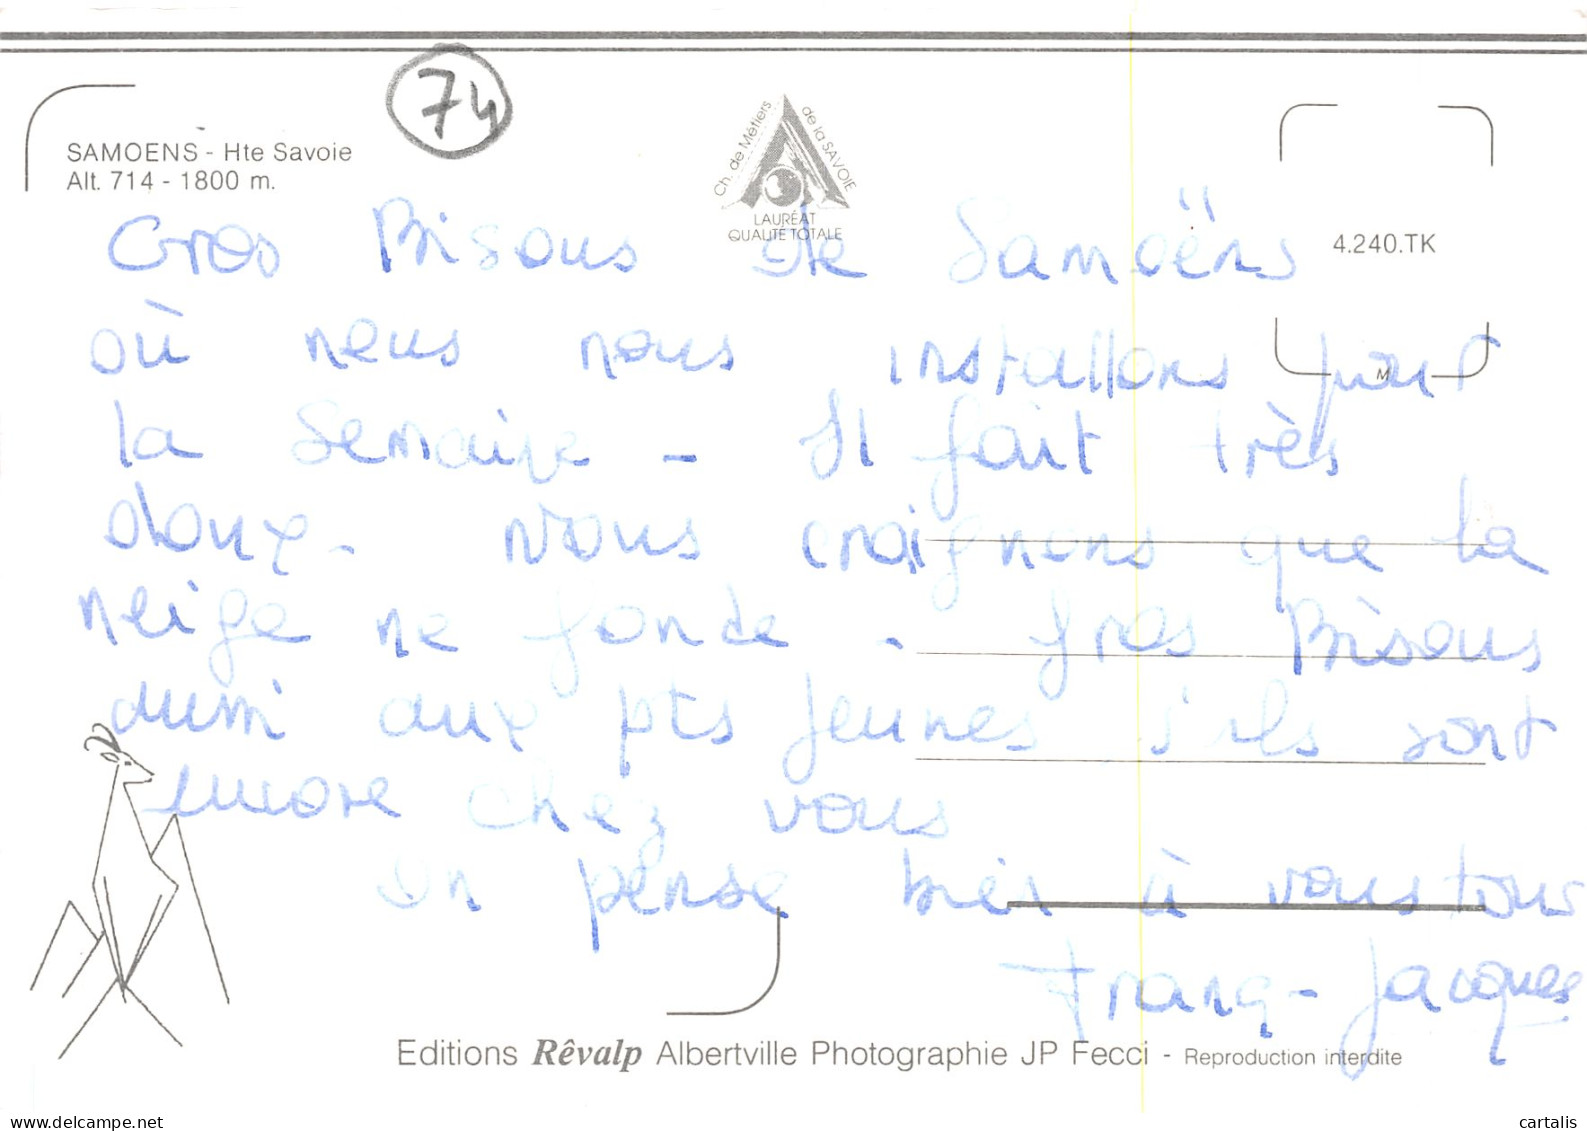 74
SAMOENS - Hte Savoie
Alt. 714 - 1800 m.
Ch. de Métiers de la SAVOIE
LAURÉAT
QUALITÉ TOTALE
4.240.TK
Gros Bisous de Samoëns
où nous nous installons pour
la semaine - Il fait très
doux - Nous craignons que la
neige ne fonde - Gros Bisous
aussi aux pts jeunes s'ils sont
encore chez vous
On pense bien à vous tous
Franç - Jacques
Editions Rêvalp Albertville Photographie JP Fecci - Reproduction interdite
delcampe.net
cartalis